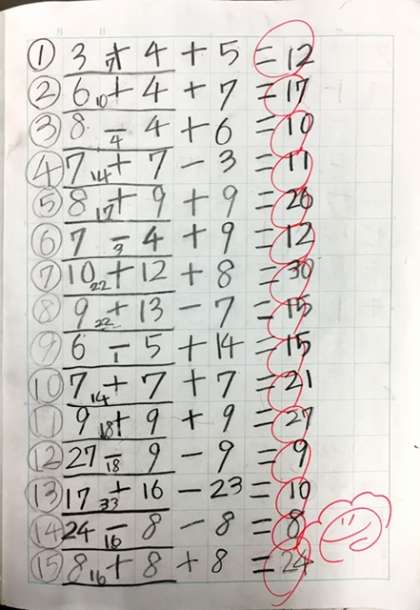 月 日
① 3 + 4 + 5 = 12
7
② 6 + 4 + 7 = 17
10
③ 8 - 4 + 6 = 10
4
④ 7 + 7 - 3 = 11
14
⑤ 8 + 9 + 9 = 26
17
⑥ 7 - 4 + 9 = 12
3
⑦ 10 + 12 + 8 = 30
22
⑧ 9 + 13 - 7 = 15
22
⑨ 6 - 5 + 14 = 15
1
⑩ 7 + 7 + 7 = 21
14
⑪ 9 + 9 + 9 = 27
18
⑫ 27 - 9 - 9 = 9
18
⑬ 17 + 16 - 23 = 10
33
⑭ 24 - 8 - 8 = 8
16
⑮ 8 + 8 + 8 = 24
16